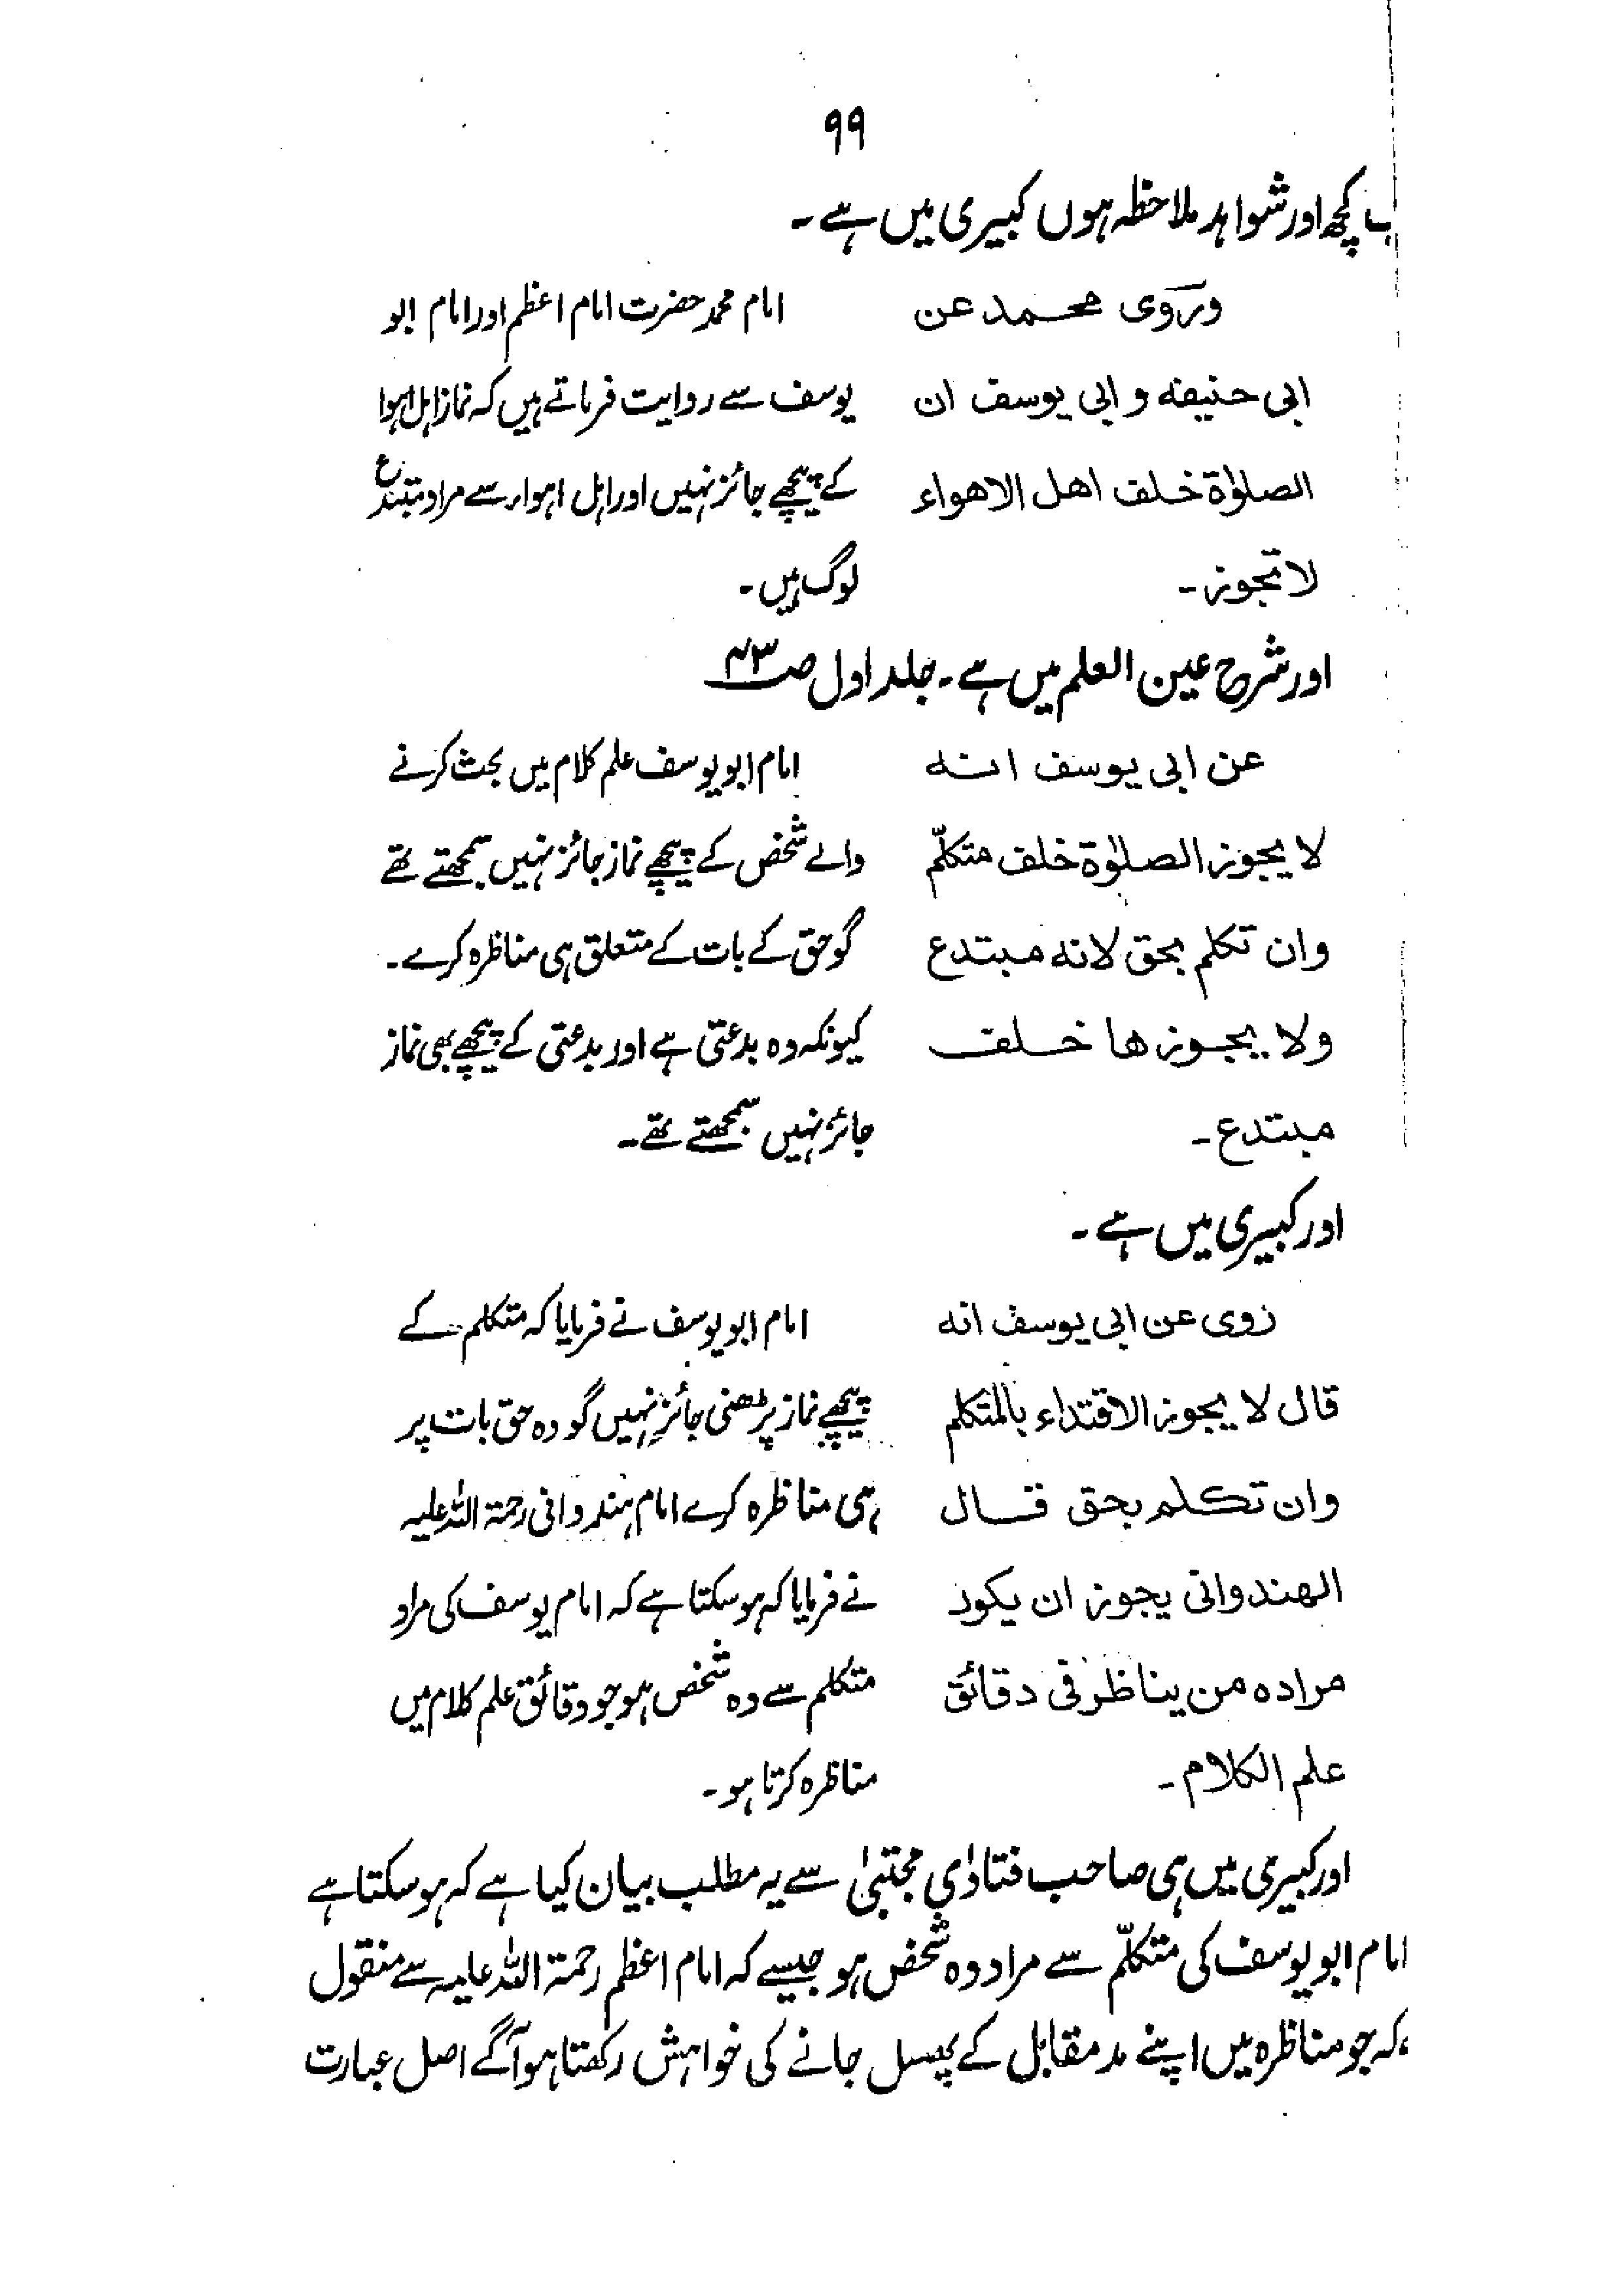 ۹۹
ب کچھ اور شواہد ملاحظہ ہوں کبیری میں ہے۔
وروی محمد عن
ابی حنیفه و ابی یوسف ان
الصلوٰة خلف اهل الاهواء
لا تجوز۔
امام محمد حضرت امام اعظم اور امام ابو
یوسف سے روایت فرماتے ہیں کہ نماز اہل اہوا
کے پیچھے جائز نہیں اور اہل اہواء سے مراد مبتدع
لوگ ہیں۔
اور شرح عین العلم میں ہے۔ جلد اول ص
عن ابی یوسف انه
لا یجوز الصلوٰة خلف متکلّم
وان تکلم بحق لانه مبتدع
ولا یجوز ها خلف
مبتدع۔
امام ابو یوسف علم کلام میں بحث کرنے
والے شخص کے پیچھے نماز جائز نہیں سمجھتے تھے
گو حق کے بات کے متعلق ہی مناظرہ کرے۔
کیونکہ وہ بدعتی ہے اور بدعتی کے پیچھے بھی نماز
جائز نہیں سمجھتے تھے۔
اور کبیری میں ہے۔
روی عن ابی یوسف انه
قال لا یجوز الاقتداء بالمتکلم
وان تکلم بحق قال
الهندوانی یجوز ان یکون
مراده من یناظر فی دقائق
علم الکلام۔
امام ابو یوسف نے فرمایا کہ متکلم کے
پیچھے نماز پڑھنی جائز نہیں گو وہ حق بات پر
ہی مناظرہ کرے امام ہندوانی رحمۃ اللہ علیہ
نے فرمایا کہ ہو سکتا ہے کہ امام یوسف کی مراد
متکلم سے وہ شخص ہو جو دقائق علم کلام میں
مناظرہ کرتا ہو۔
اور کبیری میں ہی صاحب فتاوٰی مجتبیٰ سے یہ مطلب بیان کیا ہے کہ ہو سکتا ہے
امام ابو یوسف کی متکلّم سے مراد وہ شخص ہو جیسے کہ امام اعظم رحمۃ اللہ علیہ سے منقول
کہ جو مناظرہ میں اپنے مد مقابل کے پھسل جانے کی خواہش رکھتا ہو آگے اصل عبارت